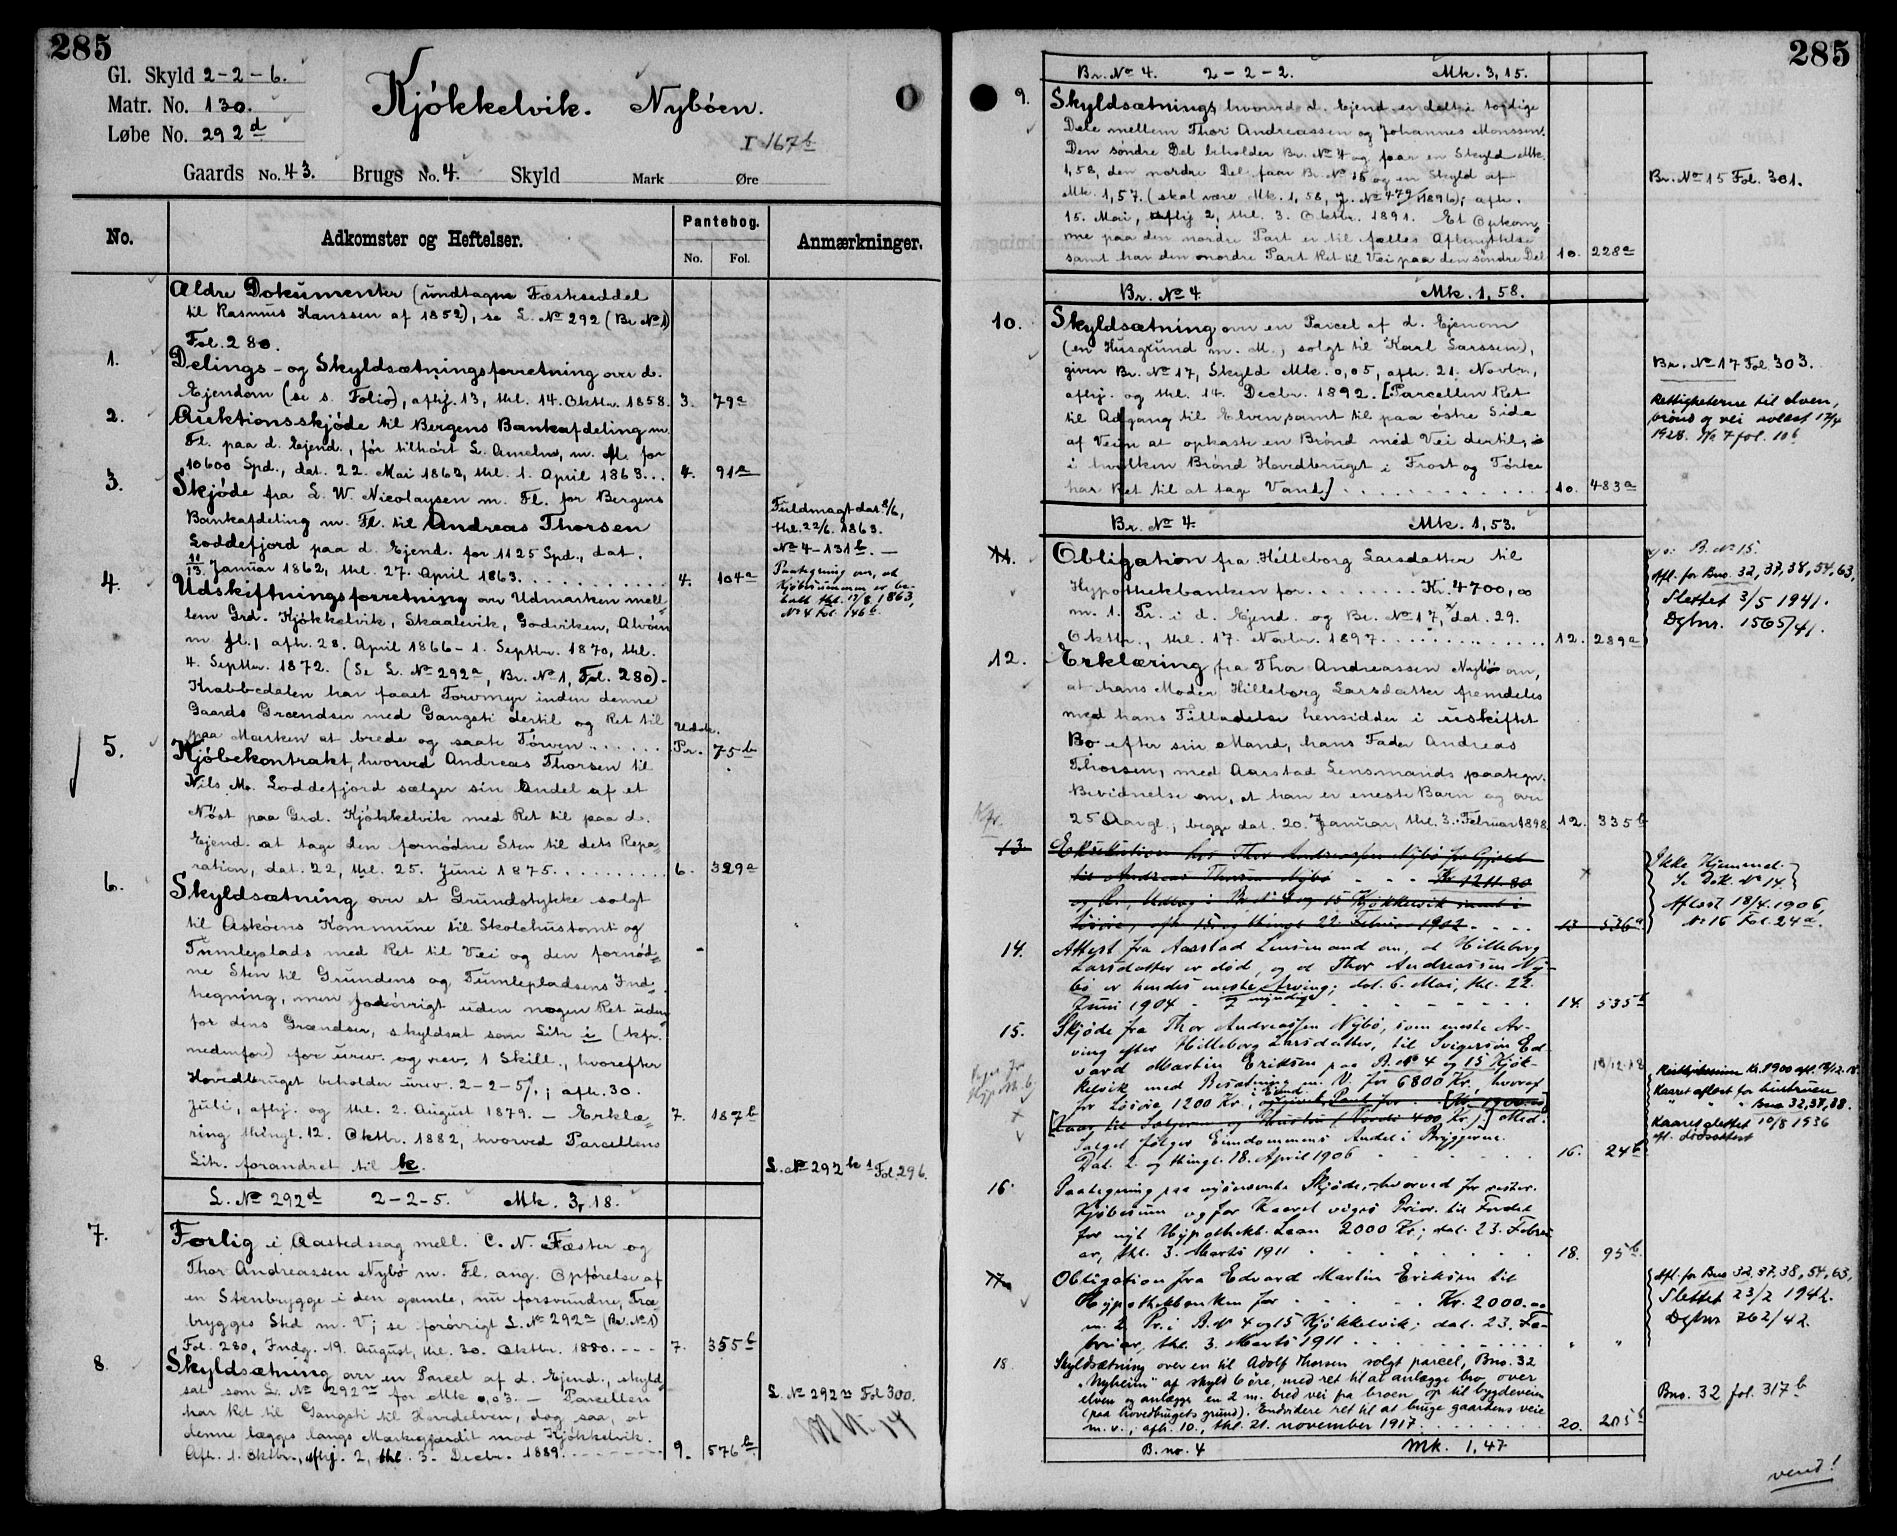 285
Gl. Skyld 2-2-6.
Matr. No. 130.
Løbe No. 292d
Kjøkkelvik. Nybøen.
I 167b
Gaards No. 43. Brugs No. 4. Skyld Mark Øre
No.
Adkomster og Heftelser.
Pantebog.
No. Fol.
Anmærkninger.
Ældre Dokumenter (undtagne Fæsteseddel
til Rasmus Hanssen af 1852), se L. No 292 (Br No 1)
Fol. 280.
1. Delings- og Skyldsætningsforretning over d.
Ejendom (se s. Folio), afhj. 13, thl. 14. Oktbr. 1858. 3. 79a
2. Auktionsskjøde til Bergens Bankafdeling m.
Fl. paa d. Ejend., før tilhørt L. Ameln, m. fl. for
10600 Spd., dat. 22. Mai 1862, thl. 1. April 1863... 4. 91a
3. Skjøde fra L. W. Nicolaysen m. Fl. for Bergens
Bankafdeling m. Fl. til Andreas Thorsen
Loddefjord paa d. Ejend. for 1125 Spd., dat.
11/13 Januar 1862, thl. 27. April 1863. 4. 104a
Fuldmagt dat. 2/6,
thl. 22/6. 1863.
No 4-131b. —
Paategning om, at
Kjøbesummen er be-
talt thl. 17/8 1863,
No 4 Fol. 146b.
4. Udskiftningsforretning over Udmarken mell
lem Grd. Kjøkkelvik, Skaalevik, Godviken, Alvøen
m. fl., afh. 28. April 1866 - 1. Septbr. 1870, thl.
4. Septbr. 1872. (Se L. No 292a, Br. No 1, Fol. 280).
Krabbedalen har faaet Torvmyr inden denne
Gaards Grændser med Gangsti dertil og Ret til
paa Marken at brede og saate Tørven...... Udsk. Pr. 75b
5. Kjøbekontrakt, hvorved Andreas Thorsen til
Nils M. Loddefjord sælger sin Andel af et
Nøst paa Grd. Kjøkkelvik med Ret til paa d.
Ejend. at tage den fornødne Sten til dets Repa-
ration, dat. 22, thl. 25. Juni 1875. 6. 329a
6. Skyldsætning over et Grundstykke solgt
til Askøens Kommune til Skolehustomt og
Tumleplads med Ret til Vei og den fornød-
ne Sten til Grundens og Tumlepladsens Ind-
hegning, men forøvrigt uden nogen Ret uden-
for dens Grændser, skyldsat som Litr. i (kfr.
nedenfor) for urev. og rev. 1 Skill., hvorefter
Hovedbruget beholder urev. 2-2-5/.; afh. 30.
Juli, afhj. og thl. 2. August 1879. — Erklæ- 7. 187b
ring thingl. 12. Oktbr. 1882, hvorved Parcellens
Litr. forandret til k. L. No 292 k 1 Fol. 296.
L. No 292d 2-2-5. Mk. 3,18.
7. Forlig i Aastedssag mell. C. N. Fæster og
Thor Andreassen Nybø m. Fl. ang. Opførelse af
en Stenbrygge i den gamle, nu forsvundne, Træ-
brygges Sted m. V; se forøvrigt L. No 292a (Br. No 1)
Fol. 280, Indg. 19. August, thl. 30. Oktbr. 1880. --- 7. 355b
8. Skyldsætning over en Parcel af d. Ejend., skyld-
sat som L. No 292n for Mk 0,03. — Parcellen L. No 292n Fol 300.
har Ret til Gangsti til Hovedelven, dog saa, at
denne lægges langs Markegjærdet mod Kjøkkelvik.
Afh. 1. Oktbr., afhj. 2, thl. 3. Decbr. 1889. 9. 576b
285
Br. No 4. 2-2-2. Mk. 3,15.
9. Skyldsætning, hvorved d. Ejend. er delt i tvende
Dele mellem Thor Andreassen og Johannes Monssen.
Den søndre Del beholder Br. No 4 og faar en Skyld Mk.
1,58, den nordre Del faar Br. No 15 og en Skyld af Br. No 15 Fol. 301.
Mk. 1,57. (skal være Mk. 1,58, J. No 479/1896); afh.
15. Mai, afhj. 2, thl. 3. Oktbr. 1891. Et Opkom-
me paa den nordre Part er til fælles Afbenyttelse
samt har den nordre Part Ret til Vei paa den søndre Del 10. 228a
Br. No 4 Mk. 1,58.
10. Skyldsætning over en Parcel af d. Ejendom
(en Husgrund m. M., solgt til Karl Larssen),
given Br. No 17, Skyld Mk. 0,05, afh. 21. Novbr., Br. No 17 Fol. 303.
afhj. og thl. 14. Decbr. 1892. [Parcellen Ret
til Adgang til Elven, samt til paa østre Side
af Veien at opkaste en Brønd med Vei dertil,
i hvilken Brønd Hovedbruget i Frost og Tørke
har Ret til at tage Vand] 10. 483a
Rettighederne til elven,
brønd og vei avlæst 17/4
1928. No 7 fol. 106
Br. No 4. Mk. 1,53.
11. Obligation fra Hilleborg Larsdatter til
Hypothekbanken for........ Kr. 4700,00
m. 1. Pr. i d. Ejend. og Br. No 17, dat. 29.
Oktbr., thl. 17. Novbr. 1897. 12. 289a
B. No 15.
Afl. for Bno. 32, 37, 38, 54, 63,
Slettet 3/5 1941.
Dgbnr. 1565/41.
12. Erklæring fra Thor Andreassen Nybø om,
at hans Moder Hilleborg Larsdatter fremdeles
med hans Tilladelse hensidder i uskiftet
Bo efter sin Mand, hans Fader Andreas
Thorsen, med Aarstad Lensmands paategn.
Bevidnelse om, at han er eneste Barn og over
25 Aargl., begge dat. 20. Januar, thl. 3. Februar 1898. 12. 335b
13. Exekution hos Thor Andreassen Nybø for Gjæld
til Andreas Thorsen Nybø - - - Kr 1211.80
og Br., Udlæg i Br No 4 og 15 Kjøkkelvik samt i
Løsøre, afh. 15. og thingl. 22. Februar 1902. 13 536a
Ikke Hjemmel.
Se Dok. No 14.
Aflæst 18/4. 1906,
No 16 Fol. 24a.
14. Attest fra Aarstad Lensmand om, at Hilleborg
Larsdatter er død, og at Thor Andreassen Ny-
bø er hendes eneste myndige Arving; dat. 6. Mai, thl. 22.
Juni 1904 14. 535b
15. Skjøde fra Thor Andreassen Nybø, som eneste Ar-
ving efter Hilleborg Larsdatter, til Svigersøn Ed-
vard Martin Eriksen paa B. No 4 og 15 Kjøk-
kelvik med Besætning m. V. for 6800 Kr., hvoraf
for Løsøre 1200 Kr.;
[Kaar til Sælgeren og Hustru (Værdi 400 Kr.)] Med-
Salget følger Eiendommens Andel i Bryggerne.
Dat. 2. og thingl. 18. April 1906 16. 24b
Kr. 1900 afl. 13/12. 18
Kaaret aflæst for
Bno 32, 37, 38.
Kaaret slettet 10/8 1936
efl. dødsattest
16. Paategning paa nysnævnte Skjøde, hvorved for rester.
Kjøbesum og for Kaaret viges Prior. til Fordel
for nyt Hypothekb. Laan 2000 Kr.; dat. 23. Febru-
ar, thl. 3. Marts 1911 18. 95b.
17. Obligation fra Edvard Martin Eriksen til
Hypothekbanken for Kr. 2000.00
m. 2 Pr. i B. No 4 og 15 Kjøkkelvik; dat. 23. Fe-
bruar, thl. 3. Marts 1911 " "
Afl. for Bno 32, 37, 38, 54, 63,
Slettet 23/2 1942.
Dgbnr 762/42.
18. Skyldsætning over en til Adolf Thorsen solgt parcel, Bno. 32
„Nyheim" af skyld 6 øre, med ret til at anlægge bro over
elven og anlægge en 2 m. bred vei fra broen op til bygdeveien Bno. 32 fol. 317b
(paa hovedbrugets grund). Endvidere ret til at bruge gaardens veie
m. v., afh. 10., thl. 21. november 1917. 20. 205b
B. no. 4 Mk. 1,47
vend!